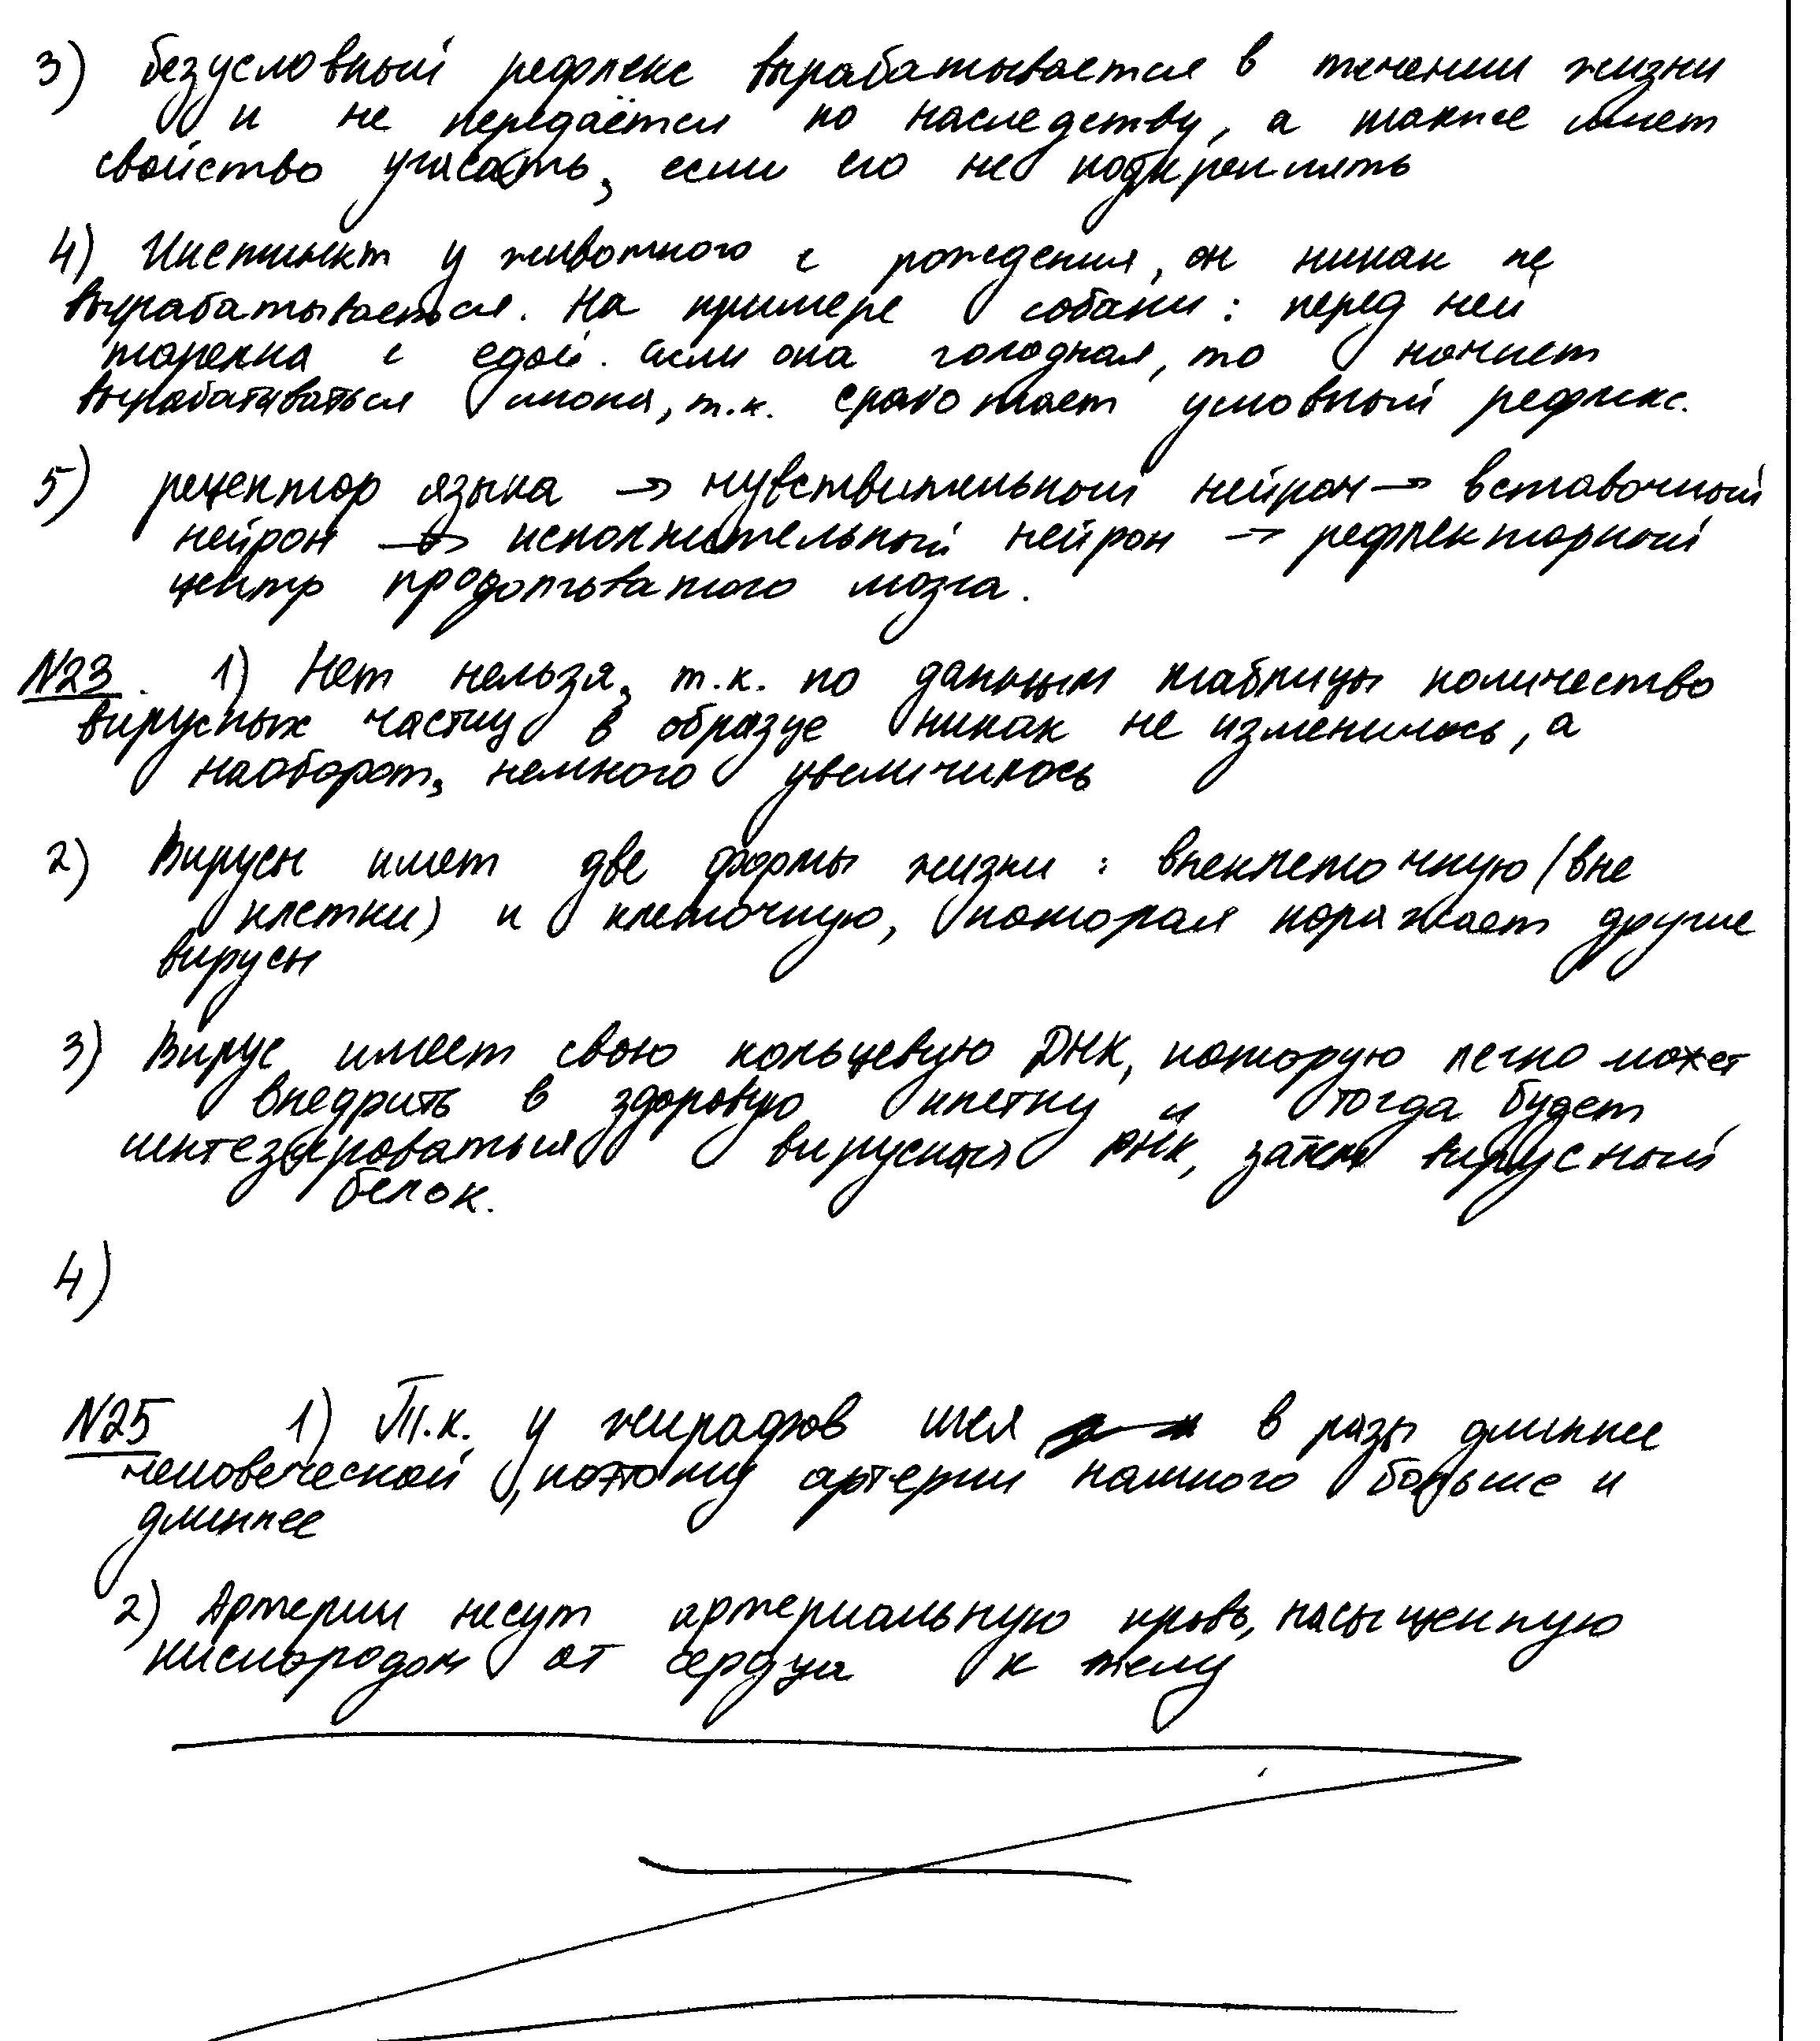 3) безусловный рефлекс вырабатывается в течении жизни
и не передаётся по наследству, а также имеет
свойство угасать, если его не подкреплять
4) Инстинкт у животного с рождения, он никак не
вырабатывается. На примере собаки: перед ней
тарелка с едой. если она голодная, то начнет
вырабатываться слюна, т.к. сработает условный рефлекс.
5) рецептор языка → чувствительный нейрон → вставочный
нейрон → исполнительный нейрон → рефлекторный
центр продолговатого мозга.
N23. 1) Нет нельзя, т.к. по данным таблицы количество
вирусных частиц в образце никак не изменилось, а
наоборот, немного увеличилось
2) Вирусы имеет две формы жизни: внеклеточную (вне
клетки) и клеточную, которая поражает другие
вирусы
3) Вирус имеет свою кольцевую ДНК, которую легко может
внедрить в здоровую клетку и тогда будет
синтезироваться вирусная РНК, затем вирусный
белок.
4)
N25 1) Т.к. у жирафов шея в разы длиннее
человеческой, поэтому артерии намного больше и
длиннее
2) Артерии несут артериальную кровь, насыщенную
кислородом от сердца к телу